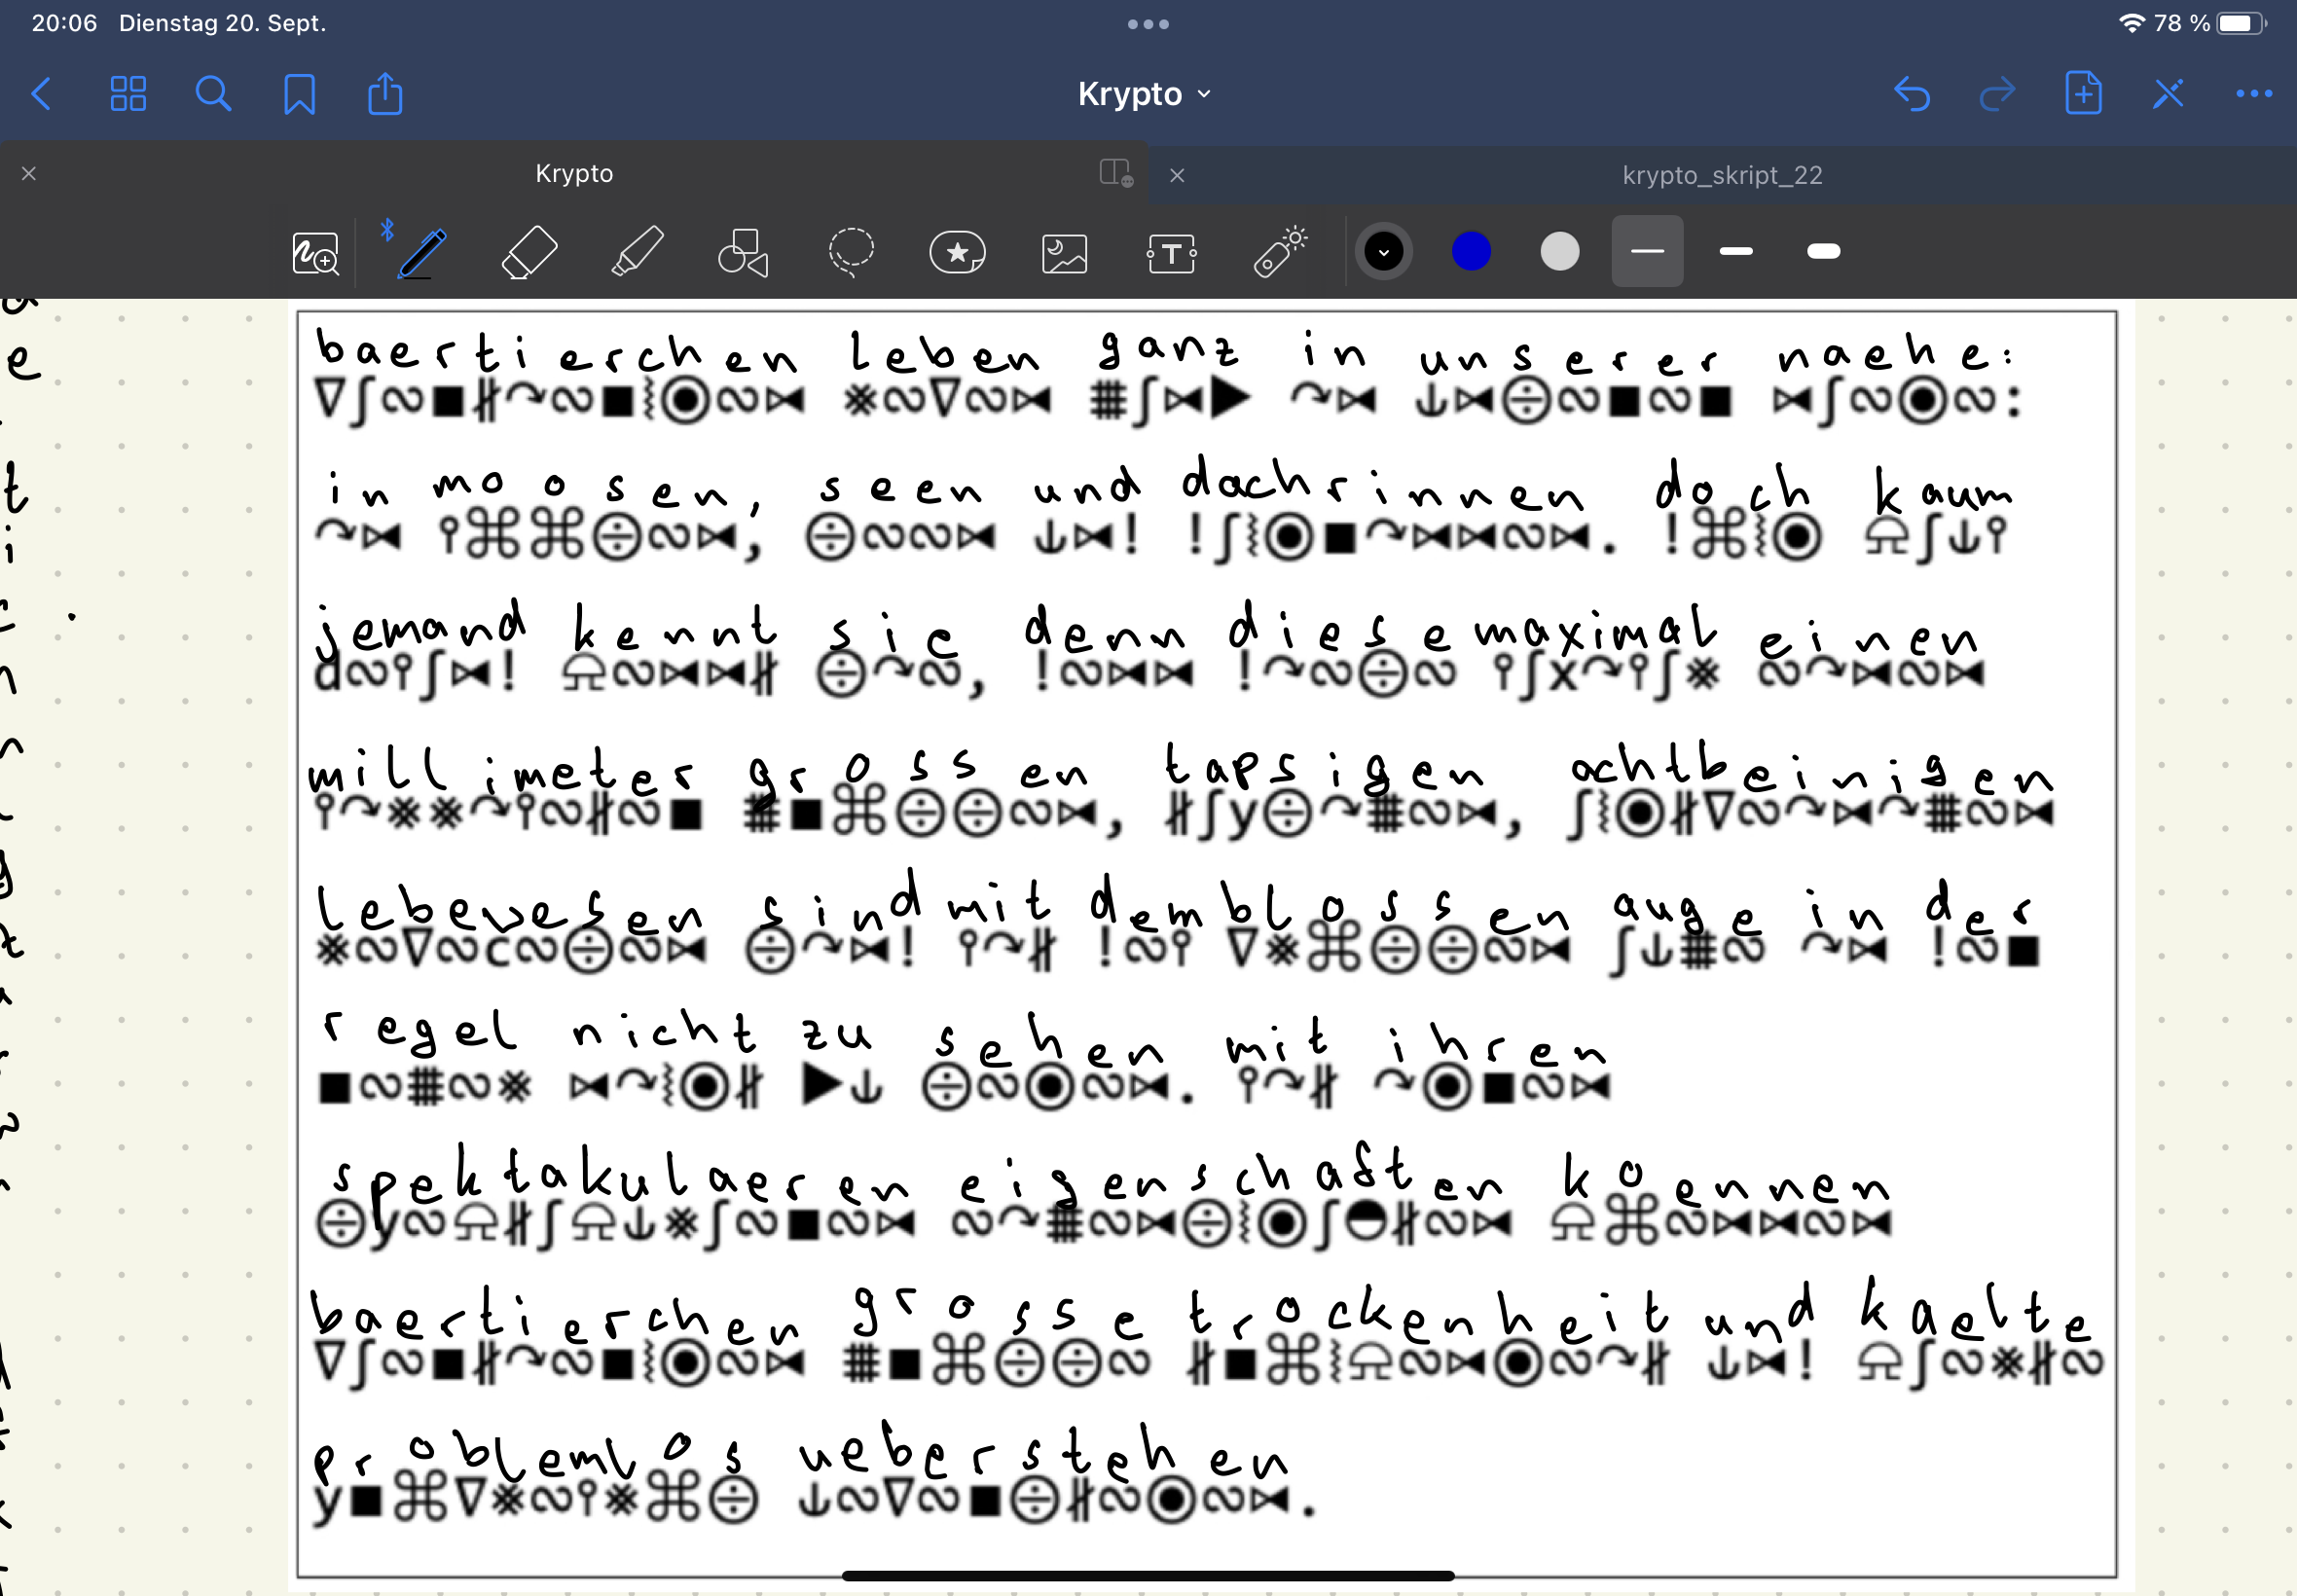 20:06 Dienstag 20. Sept.
78 %
Krypto
Krypto
krypto_skript_22
baertierchen leben ganz in unserer naehe:
∇∫∾■∦↷∾■⦚◉∾⋈ ※∾∇∾⋈ ⋕∫⋈▶ ↷⋈ ⫝⋈⨸∾■∾■ ⋈∫∾◉∾:
in moosen, seen und dachrinnen doch kaum
↷⋈ ⫯⌘⌘⨸∾⋈, ⨸∾∾⋈ ⫝⋈! !∫⦚◉■↷⋈⋈∾⋈. !⌘⦚◉ ⌓∫⫝⫯
jemand kennt sie denn diese maximal einen
d∾⫯∫⋈! ⌓∾⋈⋈∦ ⨸↷∾, !∾⋈⋈ !↷∾⨸∾ ⫯∫x↷⫯∫※ ∾↷⋈∾⋈
millimeter grossen tapsigen achtbeinigen
⫯↷※※↷⫯∾∦∾■ ⋕■⌘⨸⨸∾⋈, ∦∫y⨸↷⋕∾⋈, ∫⦚◉∦∇∾↷⋈↷⋕∾⋈
lebevesen sind mit dem blossen auge in der
※∾∇∾c∾⨸∾⋈ ⨸↷⋈! ⫯↷∦ !∾⫯ ∇※⌘⨸⨸∾⋈ ∫⫝⋕∾ ↷⋈ !∾■
regel nicht zu sehen. mit ihren
■∾⋕∾※ ⋈↷⦚◉∦ ▶⫝ ⨸∾◉∾⋈. ⫯↷∦ ↷◉■∾⋈
spektakulaeren eigenschaften koennen
⨸y∾⌓∦∫⌓⫝※∫∾■∾⋈ ∾↷⋕∾⋈⨸⦚◉∫◓∦∾⋈ ⌓⌘∾⋈⋈∾⋈
baertierchen grosse trockenheit und kaelte
∇∫∾■∦↷∾■⦚◉∾⋈ ⋕■⌘⨸⨸∾ ∦■⌘⦚⌓∾⋈◉∾↷∦ ⫝⋈! ⌓∫∾※∦∾
problemlos ueberstehen
y■⌘∇※∾⫯※⌘⨸ ⫝∾∇∾■⨸∦∾◉∾⋈.